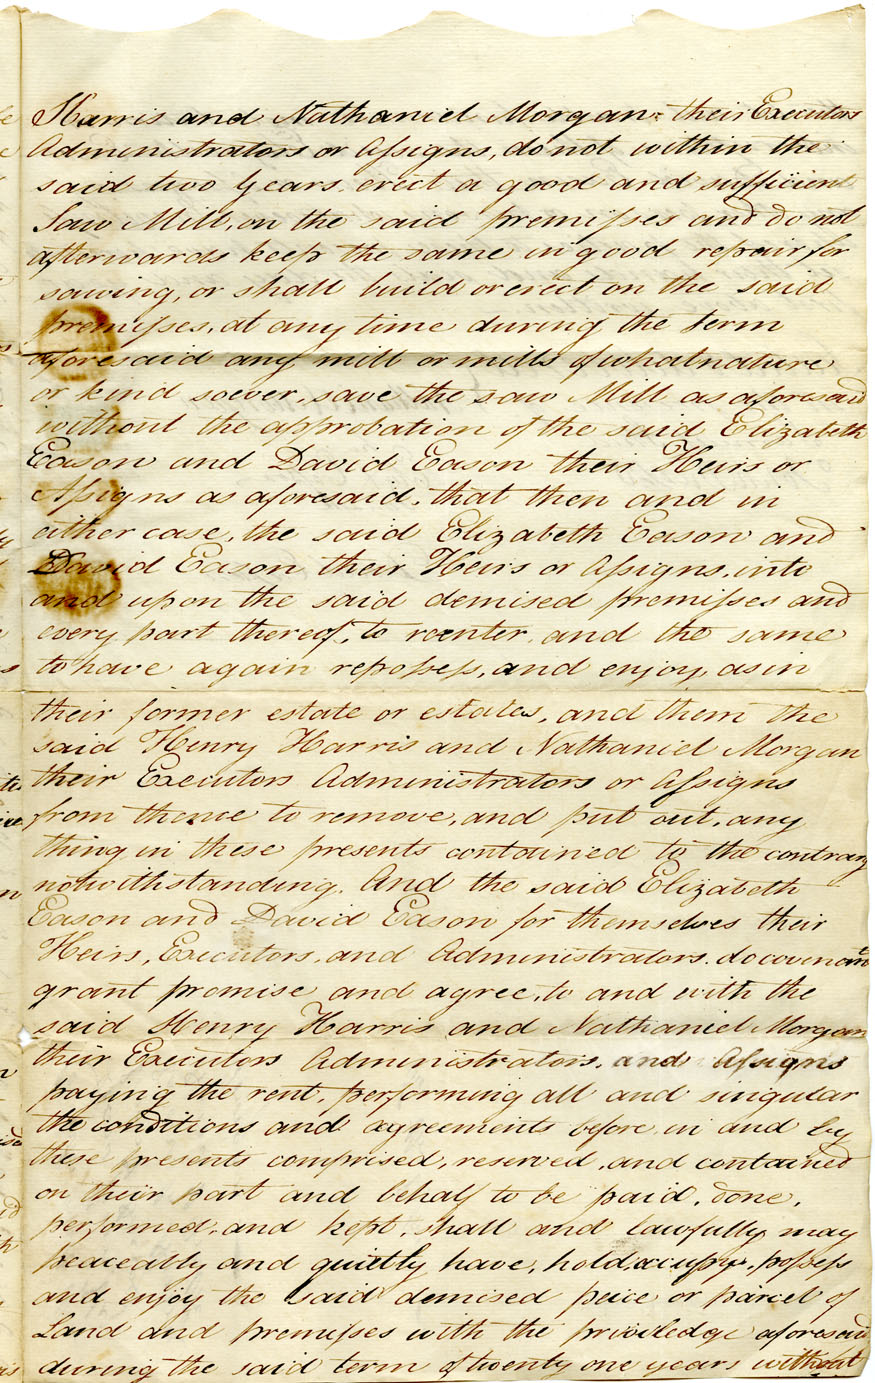 Harris and Nathaniel Morgan their Executors
Administrators or Aſsigns, do not within the
said two Years erect a good and sufficient
Saw Mill, on the said premiſses and do not
afterwards keep the same in good repair for
sawing, or shall build or erect on the said
premiſses, at any time during the term
aforesaid any mill or mills of what nature
or kind soever, save the saw Mill as aforesaid
without the approbation of the said Elizabeth
Eason and David Eason their Heirs or
Aſsigns as aforesaid, that then and in
either case, the said Elizabeth Eason and
David Eason their Heirs or Aſsigns, into
and upon the said demised premiſses and
every part thereof, to reenter, and the same
to have again repoſseſs, and enjoy, as in
their former estate or estates, and them the
said Henry Harris and Nathaniel Morgan
their Executors Administrators or Aſsigns
from thence to remove, and put out, any
thing in these presents contained to the contrary
notwithstanding. And the said Elizabeth
Eason and David Eason for themselves their
Heirs, Executors, and Administrators, do covenant
grant promise and agree, to and with the
said Henry Harris and Nathaniel Morgan
their Executors Administrators, and Aſsigns
paying the rent, performing all and singular
the conditions and agreements before in and by
these presents comprised, reserved, and contained
on their part and behalf to be paid, done,
performed, and kept, shall and lawfully may
peaceably and quietly have, hold occupy, poſseſs
and enjoy the said demised peice or parcel of
Land and premiſses with the priviledge aforesaid
during the said term of twenty one years without